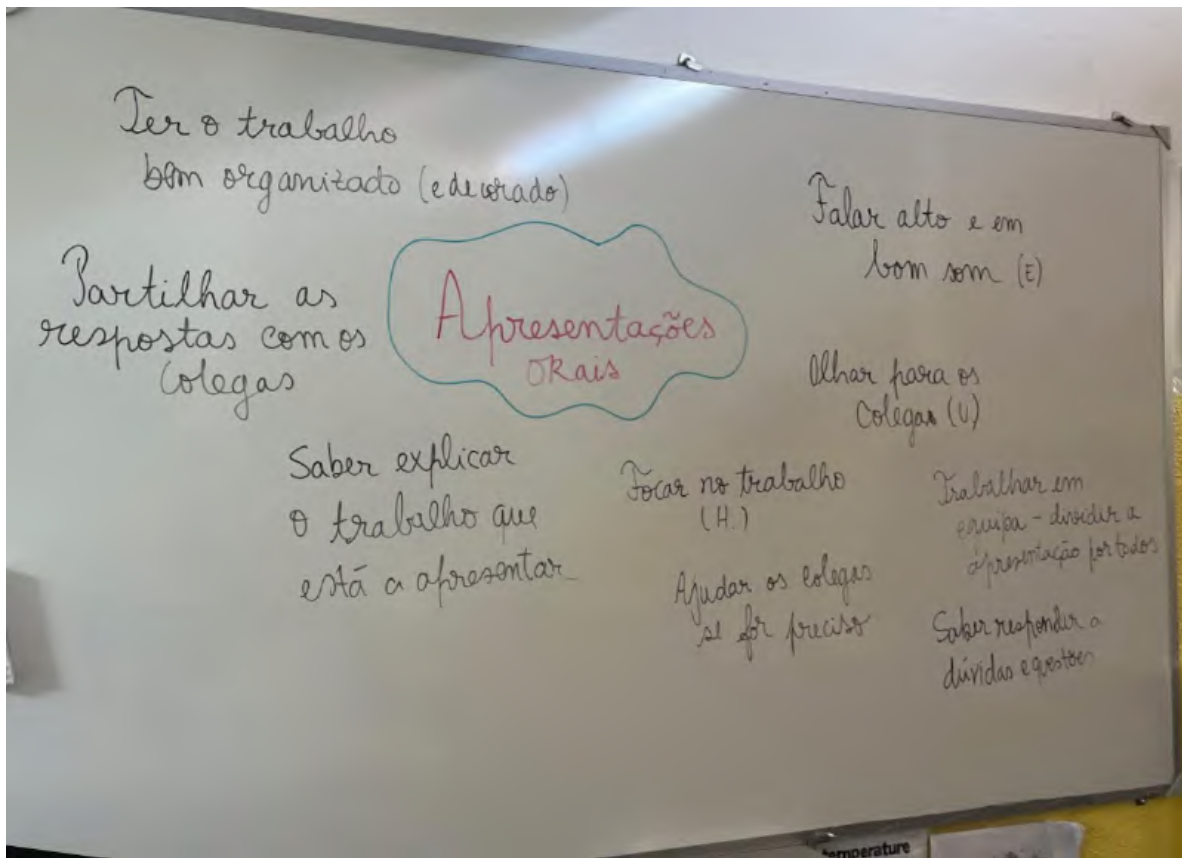 Ter o trabalho
bem organizado (e decorado)
Partilhar as
respostas com os
colegas
Apresentações
ORais
Falar alto e em
bom som (E)
Olhar para os
colegas (U)
Saber explicar
o trabalho que
está a apresentar
Focar no trabalho
(H.)
Ajudar os colegas
se for preciso
Trabalhar em
equipa - dividir a
apresentação por todos
Saber responder a
dúvidas e questões
temperature